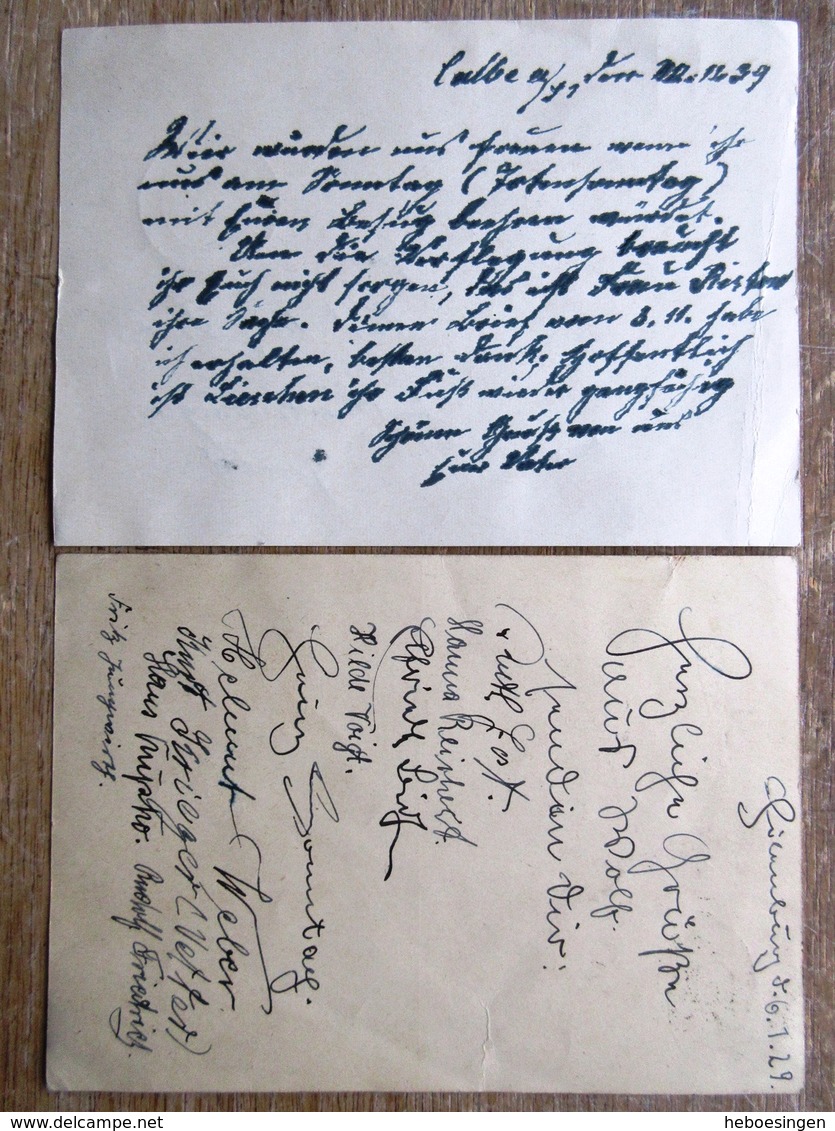 Calbe a/S, den 11.39
Wir würden uns freuen wenn ihr
uns am Sonntag (Totensonntag)
mit Euren Besuch beehren würdet.
Um die Verpflegung braucht
ihr Euch nicht sorgen, das ist Frau Richter
ihre Sache. Deinen Brief vom 8.11. habe
ich erhalten, besten Dank. Hoffentlich
ist Lieschen ihr Fuß wieder gangfähig
Schönen Gruß von uns
Euer Vater
d. 6.1.29.
Herzliche Grüße
aus Wolf.
senden Dir:
Ruth Lost.
Hanna Reichert.
Hilde Voigt.
Heinz Sonntag.
Helmut Weber
Krieger (Vetter)
Hans Rudolf Friedrich.
Fritz
heboesingen